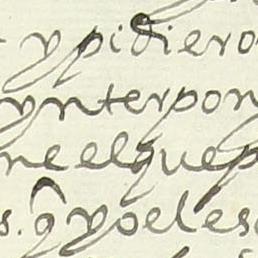 y pidiero
ynterpon
ne el que p
s. q̃ yo el es